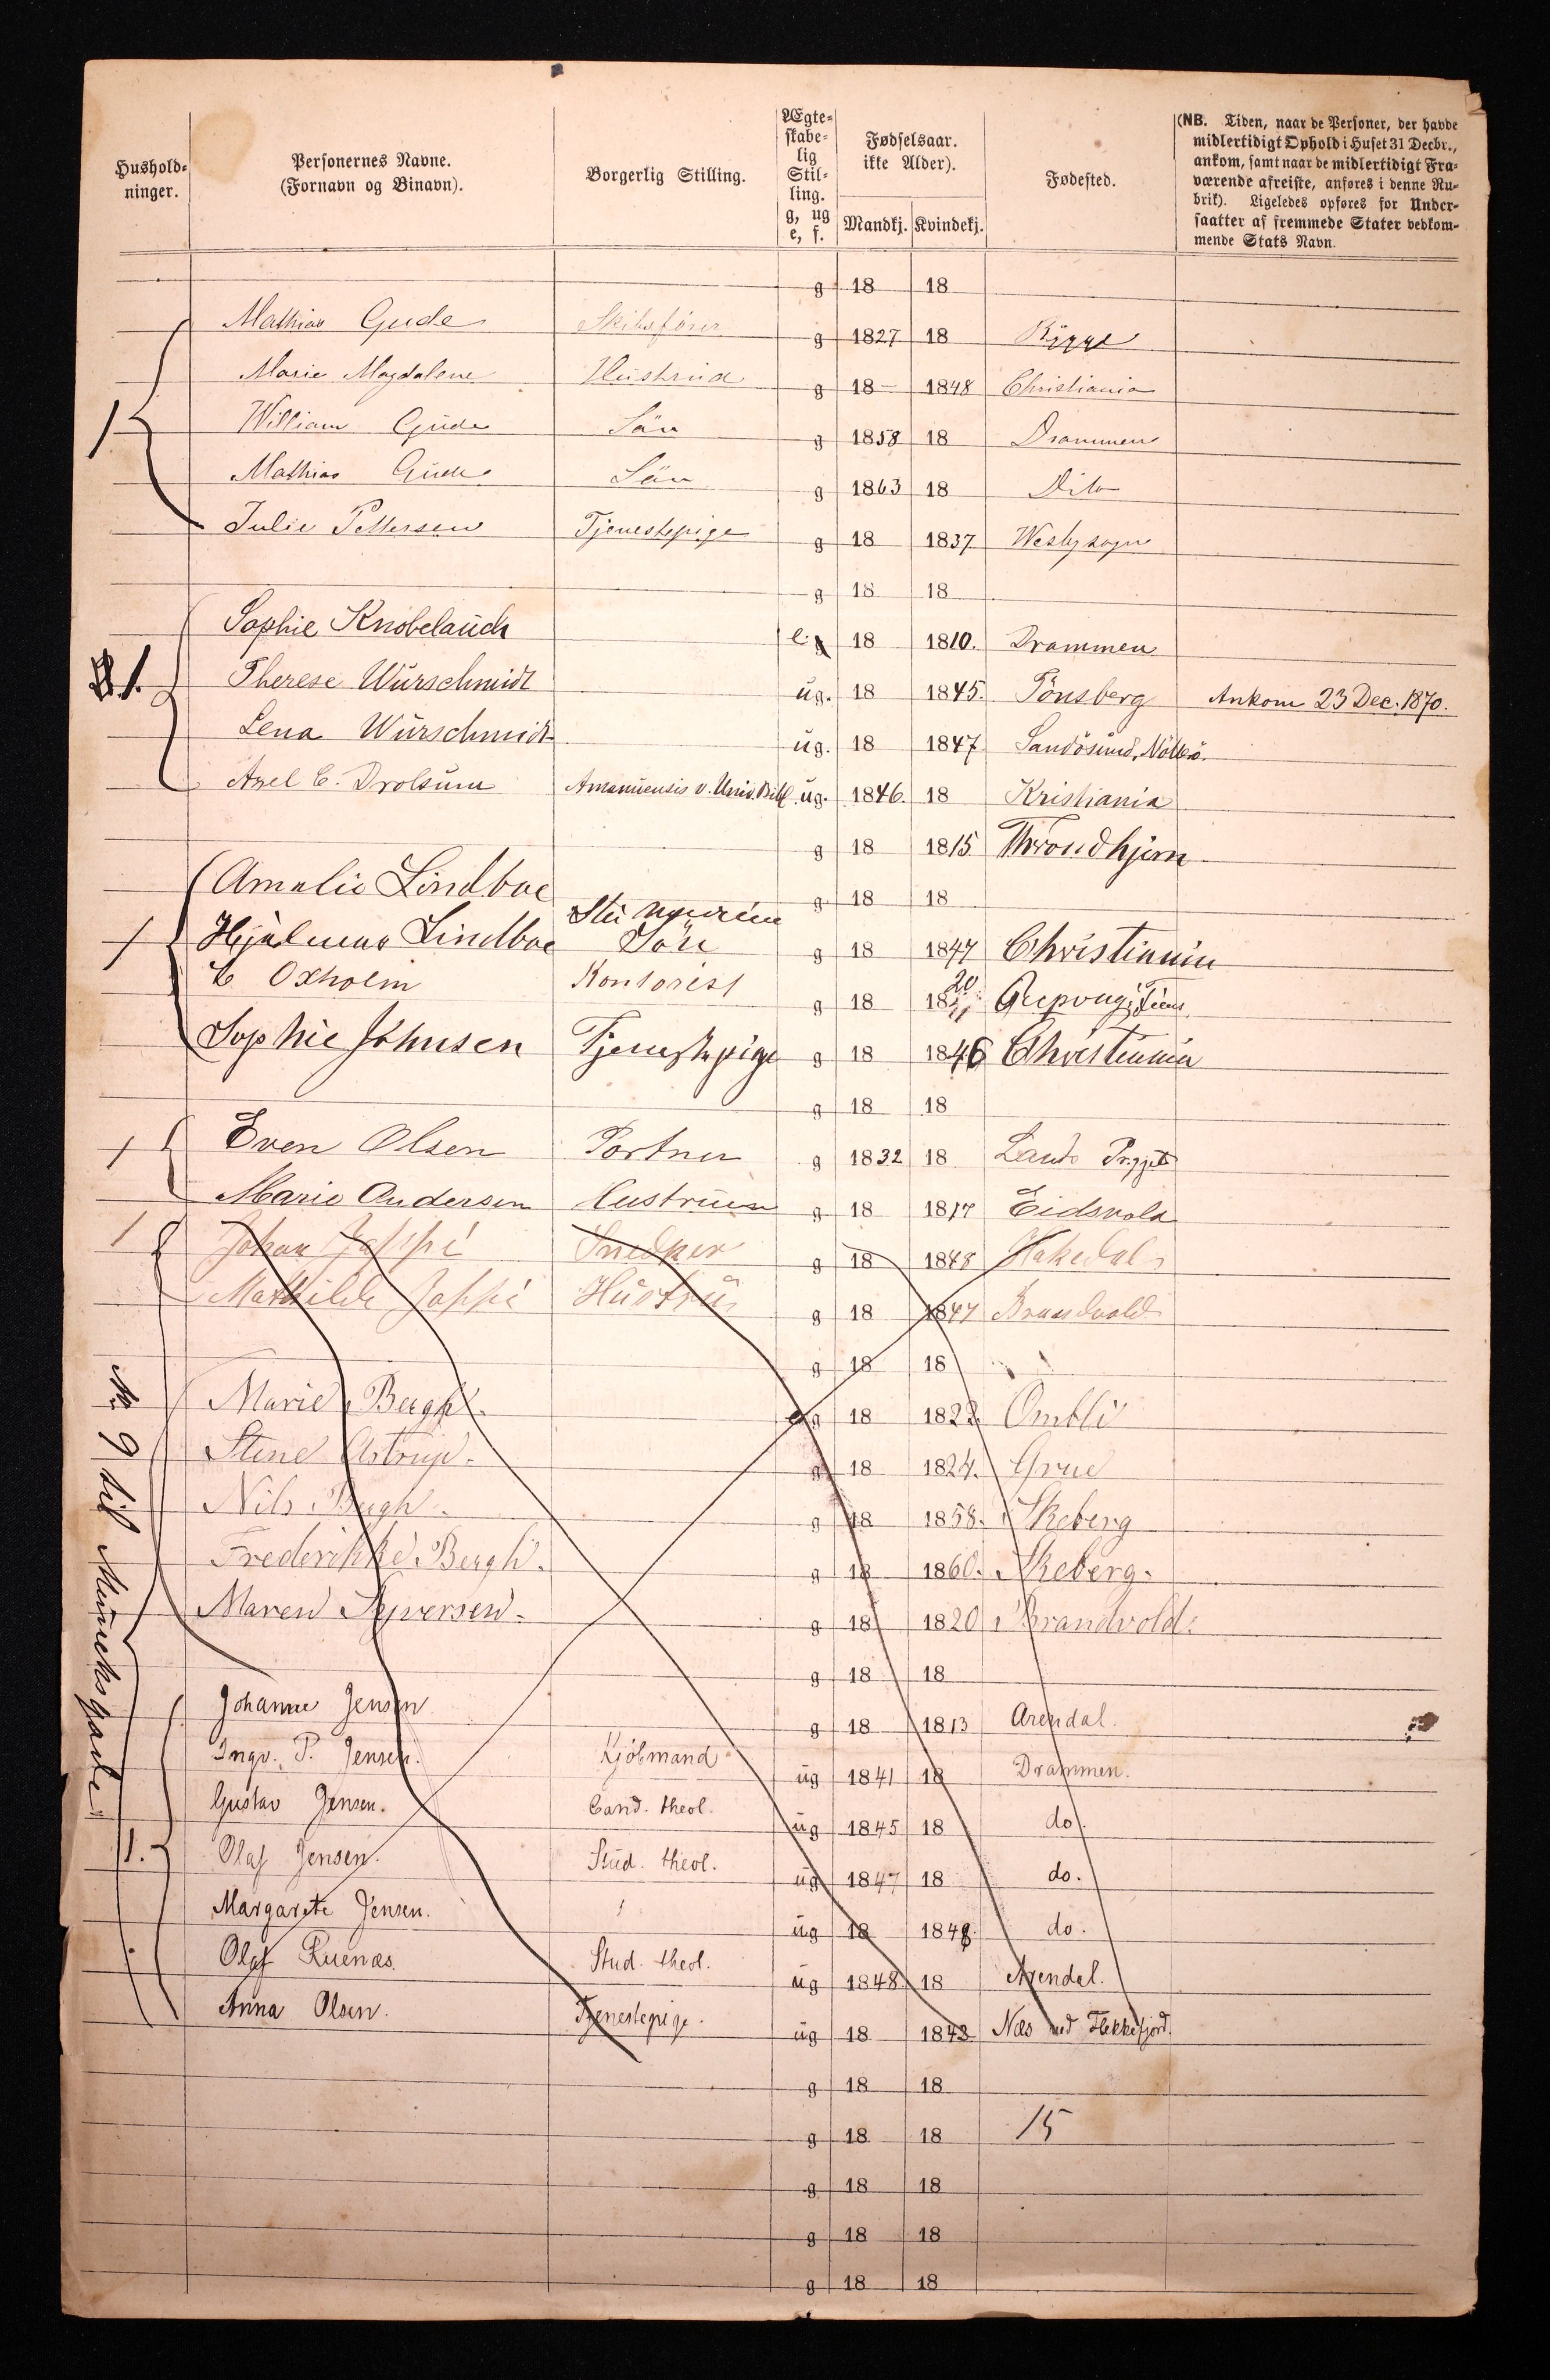 Hushold-
ninger.
Personernes Navne.
(Fornavn og Binavn).
Borgerlig Stilling.
Ægte-
skabe-
lig
Stil-
ling.
g, ug
e, f.
Fødselsaar.
ikke Alder).
Mandkj. Kvindekj.
Fødested.
(NB. Tiden, naar de Personer, der havde
midlertidigt Ophold i Huset 31 Decbr.,
ankom, samt naar de midlertidigt Fra-
værende afreiste, anføres i denne Ru-
brik). Ligeledes opføres for Under-
saatter af fremmede Stater vedkom-
mende Stats Navn.
g 18 18
Mathias Gude Skibsfører g 1827 18 Rygge
Marie Magdalene Hustrue g 18- 1848 Christiania
1 William Gude Sön g 1858 18 Drammen
Mathias Gude Sön g 1863 18 Dito
Julie Pettersen Tjenestepige g 18 1837 Westby sogn
g 18 18
Sophie Knobelauch e. g 18 1810. Drammen
1. Therese Würschmidt ug. 18 1845. Tönsberg Ankom 23 Dec. 1870.
Lena Würschmidt ug. 18 1847 Sandösund, Nötterö.
Axel C. Drolsum Amanuensis v. Univ. Bibl. ug. 1846. 18 Kristiania
g 18 1815 Throndhjem
Amalie Lindboe g 18 18
1 Hjalmar Lindboe Sön g 18 1847 Christiania
C Oxholm Kontorist g 18 1820
Sophie Johnsen Tjenestepige g 18 1846 Christiania
g 18 18
1 Even Olsen Portner g 1832 18 Lands Prgjeld
Marie Andersen Hustruen g 18 1817 Eidsvold
1 Johan Joppe Snedker g 18 1848 Hakedal
Mathilde Joppe Hustru g 18 1847 Brandvold
g 18 18
Marie Bergh. e g 18 1822. Ombli
Stine Astrup. g 18 1824. Grue
Nils Bergh. g 18 1858. Skeberg
Frederikke Bergh. g 18 1860. Skeberg.
Maren Syversen. g 18 1820 Brandvold.
g 18 18
Johanne Jensen g 18 1813 Arendal.
Ingv. P. Jensen. Kjöbmand ug 1841 18 Drammen.
Gustav Jensen. Cand. theol. ug 1845 18 do.
1. Olaf Jensen. Stud. theol. ug 1847 18 do.
Margarete Jensen. ug 18 1848. do.
Olaf Ruenæs. Stud. theol. ug 1848. 18 Arendal.
Anna Olsen. Tjenestepige. ug 18 1843 Næs ved Flekkefjord.
g 18 18
g 18 18 15
g 18 18
g 18 18
g 18 18
N. 9 til Munchs gade